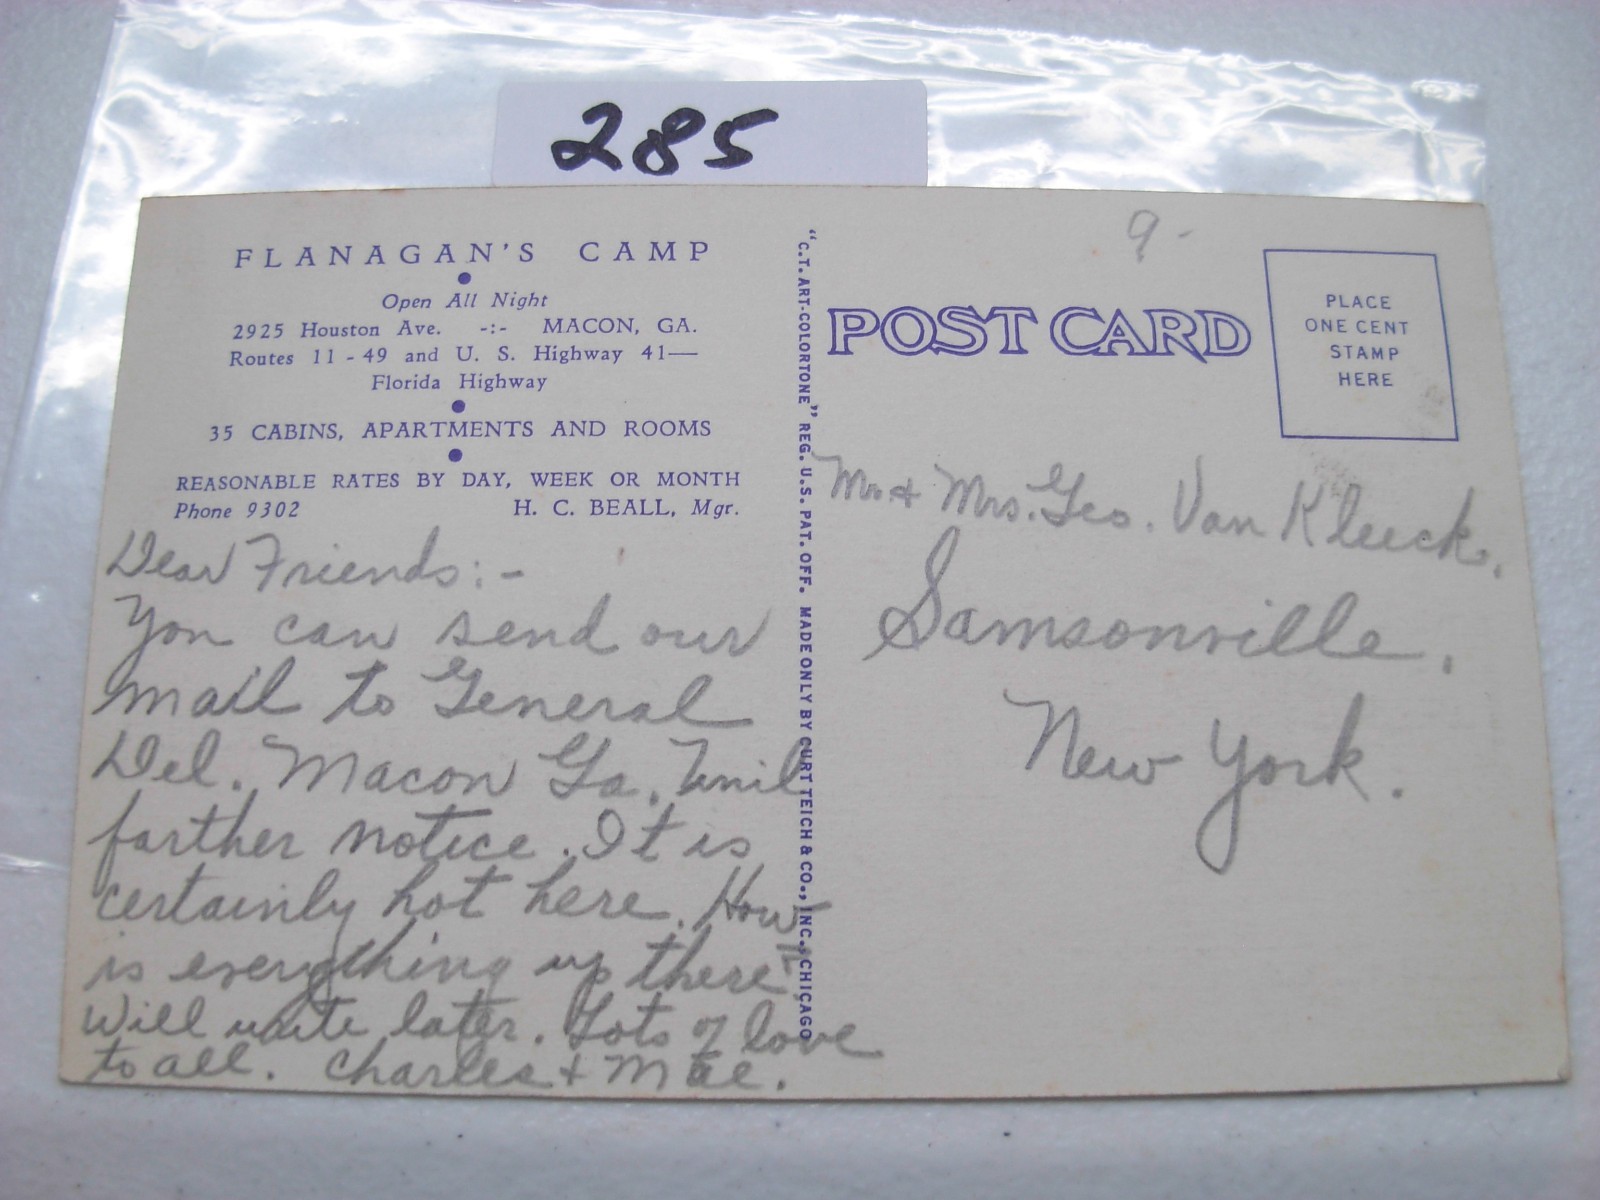 285
FLANAGAN'S CAMP
Open All Night
2925 Houston Ave. -:- MACON, GA.
Routes 11 - 49 and U. S. Highway 41—
Florida Highway
35 CABINS, APARTMENTS AND ROOMS
REASONABLE RATES BY DAY, WEEK OR MONTH
Phone 9302 H. C. BEALL, Mgr.
Dear Friends:-
You can send our
mail to General
Del. Macon Ga. Unil
farther notice. It is
certainly hot here. How
is everything up there?
Will write later. Lots of love
to all. Charles + Mae.
"C.T. ART-COLORTONE" REG. U.S. PAT. OFF. MADE ONLY BY CURT TEICH & CO., INC., CHICAGO
9-
POST CARD
PLACE
ONE CENT
STAMP
HERE
Mr. + Mrs. Geo. Van Kleeck.
Samsonville.
New York.